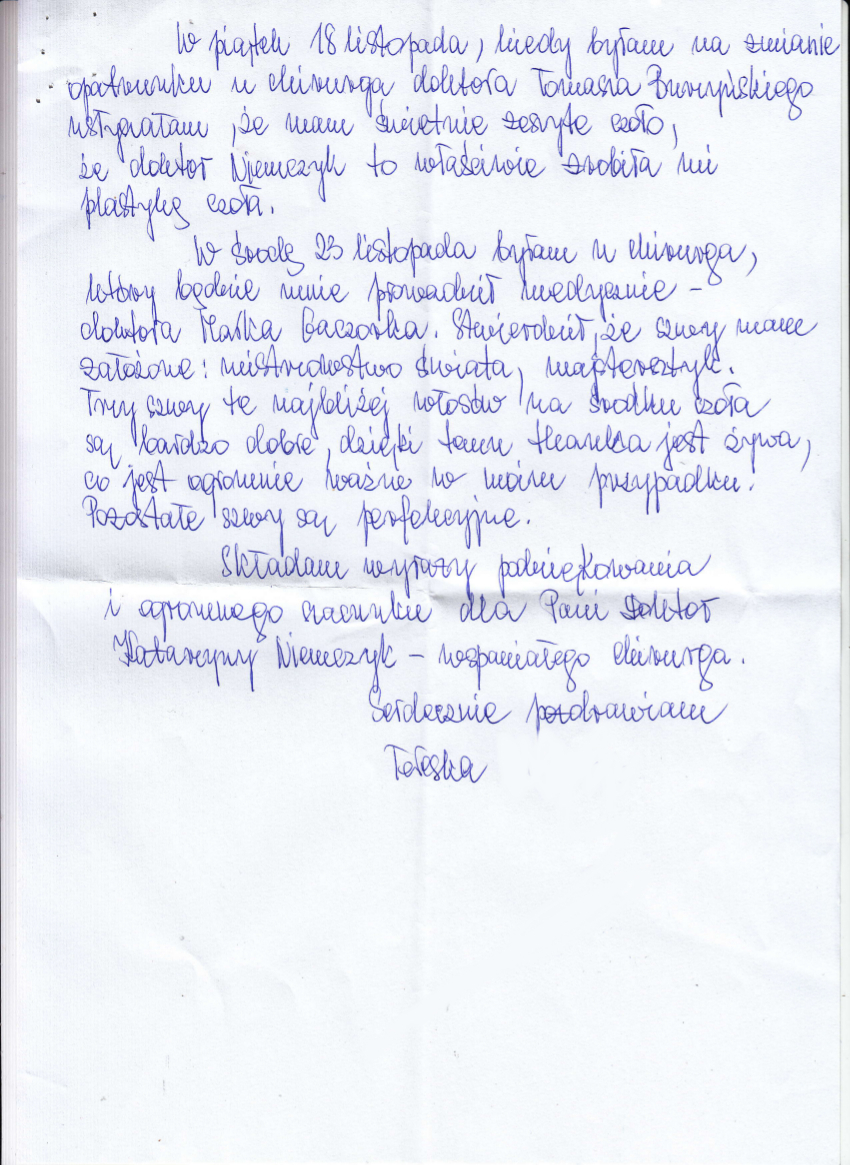 W piątek 18 listopada, kiedy byłam na zmianie
opatrunku u chirurga doktora Tomasza Burczyńskiego
usłyszałam, że mam świetnie zeszyte czoło,
że doktor Niemczyk to właściwie zrobiła mi
plastykę czoła.
W środę 23 listopada byłam u chirurga,
który będzie mnie prowadził medycznie –
doktora Marka Gaczorka. Stwierdził, że szwy mam
założone: mistrzostwo świata, majstersztyk.
Trzy szwy te najbliżej włosów na środku czoła
są bardzo dobre, dzięki temu tkanka jest żywa,
co jest ogromnie ważne w moim przypadku.
Pozostałe szwy są perfekcyjne.
Składam wyrazy podziękowania
i ogromnego szacunku dla Pani Doktor
Katarzyny Niemczyk – wspaniałego chirurga.
Serdecznie pozdrawiam
Tereska